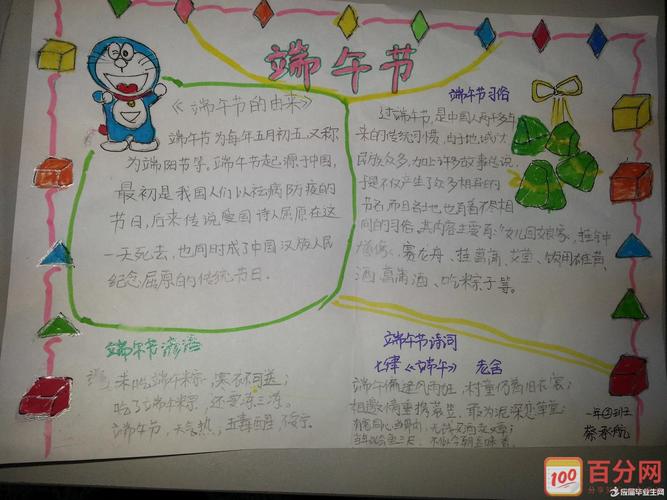 端午节
《端午节的由来》
端午节为每年五月初五,又称
为端阳节等。端午节起源于中国,
最初是我国人们以祛病防疫的
节日,后来传说爱国诗人屈原在这
一天死去,也同时成了中国汉族人民
纪念屈原的传统节日。
端午节习俗
过端午节,是中国人两千多年
来的传统习惯,由于地域广大
民族众多,加上许多故事传说,
于是不仅产生了众多相异的
节名,而且各地也有着不尽相
同的习俗。其内容主要有:女儿回娘家,挂钟
馗像、赛龙舟、挂菖蒲、艾草、饮用雄黄
酒、菖蒲酒、吃粽子等。
端午节谚语
未吃端午粽,寒衣不可送;
吃了端午粽,还要冻三冻。
端午节,天气热,五毒醒,不安宁。
端午节诗词
七律《端午》 老舍
端午偏逢风雨狂,村童仍着旧衣裳;
相邀情重携蓑笠,敢为泥深恋草堂;
有客同心当骨肉,无钱买酒卖文章;
一年④班
蔡承航
100 百分网
应届毕业生网